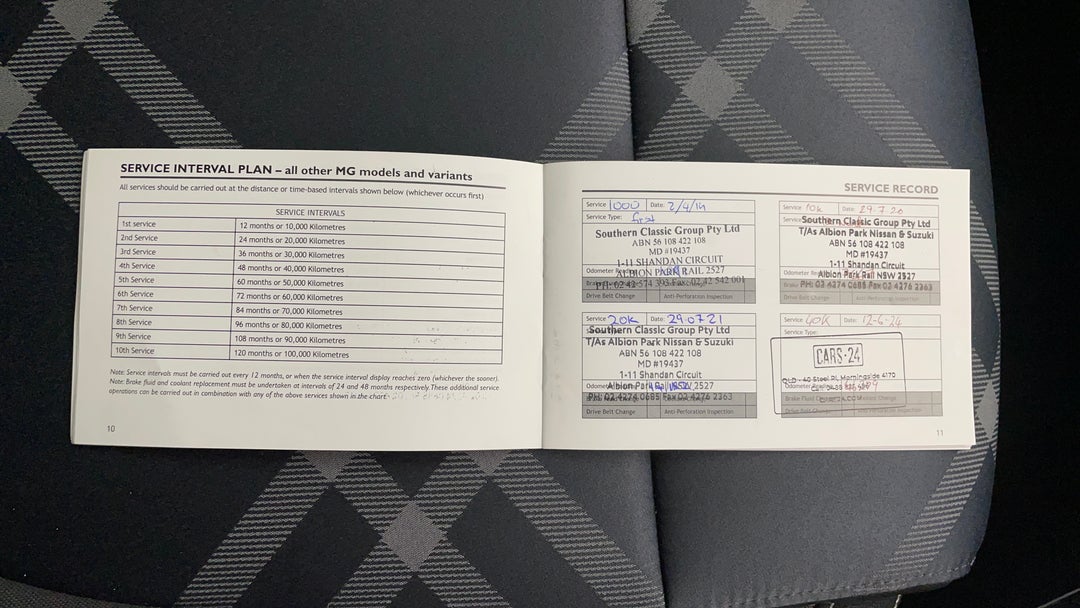 SERVICE INTERVAL PLAN – all other MG models and variants
All services should be carried out at the distance or time-based intervals shown below (whichever occurs first)
SERVICE INTERVALS
1st service 12 months or 10,000 Kilometres
2nd Service 24 months or 20,000 Kilometres
3rd Service 36 months or 30,000 Kilometres
4th Service 48 months or 40,000 Kilometres
5th Service 60 months or 50,000 Kilometres
6th Service 72 months or 60,000 Kilometres
7th Service 84 months or 70,000 Kilometres
8th Service 96 months or 80,000 Kilometres
9th Service 108 months or 90,000 Kilometres
10th Service 120 months or 100,000 Kilometres
Note: Service intervals must be carried out every 12 months, or when the service interval display reaches zero (whichever the sooner).
Note: Brake fluid and coolant replacement must be undertaken at intervals of 24 and 48 months respectively. These additional service
operations can be carried out in combination with any of the above services shown in the chart
10
SERVICE RECORD
Service 1000 Date:
Service Type: first
Southern Classic Group Pty Ltd
ABN 56 108 422 108
MD #19437
1-11 SHANDAN CIRCUIT
ALBION PARK RAIL 2527
PH: 02 42 574 393 Fax: 02 42 542 001
Drive Belt Change Anti-Perforation Inspection
Service 10k Date: 29.7.20
Southern Classic Group Pty Ltd
T/As Albion Park Nissan & Suzuki
ABN 56 108 422 108
MD #19437
1-11 Shandan Circuit
Albion Park Rail NSW 2527
PH: 02 4274 0685 Fax 02 4276 2363
Drive Belt Change Anti-Perforation Inspection
Service 20k Date: 29.07.21
Southern Classic Group Pty Ltd
T/As Albion Park Nissan & Suzuki
ABN 56 108 422 108
MD #19437
1-11 Shandan Circuit
Albion Park 2527
PH: 02 4274 0685 Fax 02 4276 2363
Drive Belt Change Anti-Perforation Inspection
Service 40k Date: 12-6-24
Service Type:
CARS-24
QLD - 40 Steel Pl, Morningside 4170
Brake Fluid Change
Drive Belt Change Anti-Perforation Inspection
11